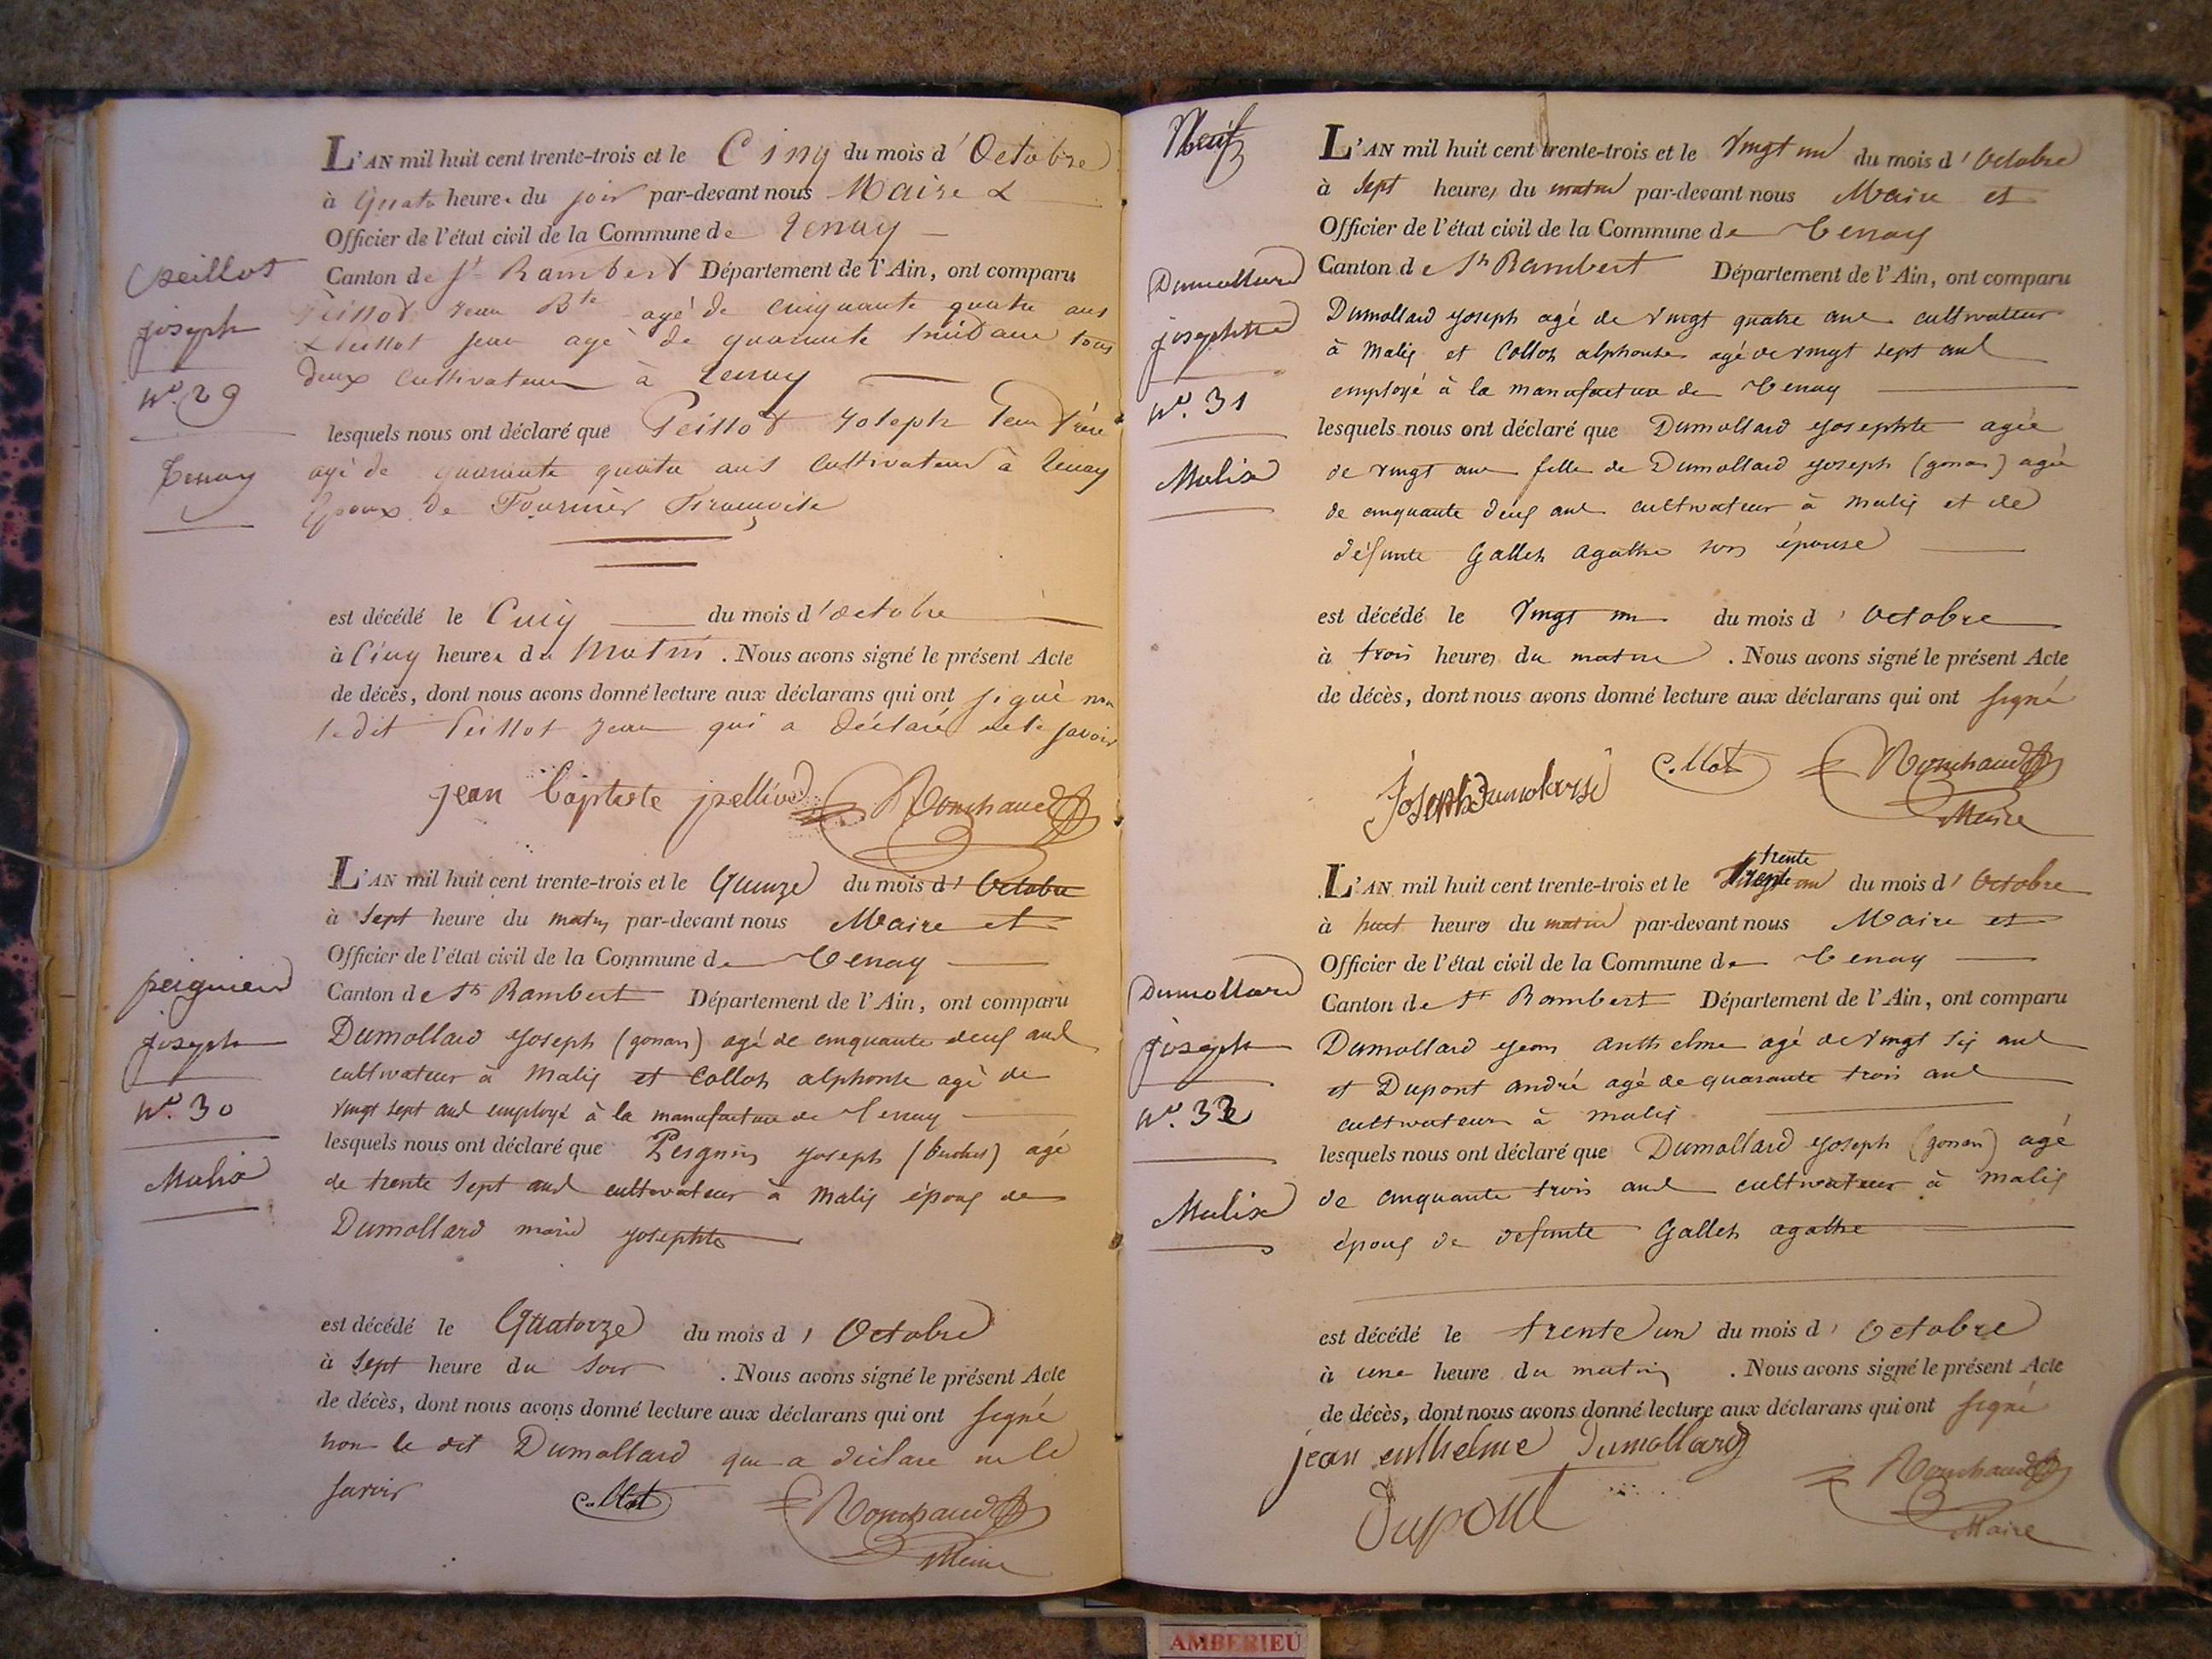 Peillot
joseph
Nº. 29
Tenay
L'AN mil huit cent trente-trois et le Cinq du mois d'Octobre
à Quatre heures du soir par-devant nous Maire &
Officier de l'état civil de la Commune de Tenay
Canton de St Rambert Département de l'Ain, ont comparu
Peillot Jean Bte agé de cinquante quatre ans
& Peillot jean agé de quarante huit ans tous
deux cultivateurs à Tenay
lesquels nous ont déclaré que Peillot Joseph leur frère
agé de quarante quatre ans cultivateur à Tenay
Epoux de Fournier Françoise
est décédé le Cinq du mois d'octobre
à Cinq heures du Matin. Nous avons signé le présent Acte
de décès, dont nous avons donné lecture aux déclarans qui ont signé non
ledit Peillot Jean qui a déclaré ne le savoir
jean baptiste Ronchaud
peignieu
joseph
Nº. 30
Malix
L'AN mil huit cent trente-trois et le Quinze du mois d'Octobre
à sept heure du matin par-devant nous Maire et
Officier de l'état civil de la Commune de Tenay
Canton de St Rambert Département de l'Ain, ont comparu
Dumollard Joseph (gonan) agé de cinquante deux ans
cultivateur à Malix et Collot alphonse agé de
vingt sept ans employé à la manufacture de Tenay
lesquels nous ont déclaré que Joseph agé
de trente sept ans cultivateur à Malix époux de
Dumollard marie Josephte
est décédé le Quatorze du mois d'Octobre
à sept heure du Soir. Nous avons signé le présent Acte
de décès, dont nous avons donné lecture aux déclarans qui ont signé
non le dit Dumollard qui a déclaré ne le
savoir
Collot Ronchaud
Maire
Neuf
Dumollard
josephte
Nº. 31
Malix
L'AN mil huit cent trente-trois et le Vingt un du mois d'Octobre
à sept heures du matin par-devant nous Maire et
Officier de l'état civil de la Commune de Tenay
Canton de St Rambert Département de l'Ain, ont comparu
Dumollard Joseph agé de vingt quatre ans cultivateur
à Malix et Collot alphonse agé de vingt sept ans
employé à la manufacture de Tenay
lesquels nous ont déclaré que Dumollard Josephte agée
de vingt ans fille de Dumollard Joseph (gonan) agé
de cinquante deux ans cultivateur à Malix et de
défunte Gallet agathe son épouse
est décédé le Vingt un du mois d'Octobre
à trois heures du matin. Nous avons signé le présent Acte
de décès, dont nous avons donné lecture aux déclarans qui ont signé
Joseph Collot Ronchaud
Maire
Dumollard
joseph
Nº. 32
Malix
trente
L'AN mil huit cent trente-trois et le un du mois d'Octobre
à huit heures du matin par-devant nous Maire et
Officier de l'état civil de la Commune de Tenay
Canton de St Rambert Département de l'Ain, ont comparu
Dumollard Jean anthelme agé de vingt six ans
et Dupont andré agé de quarante trois ans
cultivateurs à malix
lesquels nous ont déclaré que Dumollard Joseph (gonan) agé
de cinquante trois ans cultivateur à malix
époux de defunte Gallet agathe
est décédé le trente un du mois d'Octobre
à une heure du matin. Nous avons signé le présent Acte
de décès, dont nous avons donné lecture aux déclarans qui ont signé
jean enthelme dumollard Ronchaud
dupont Maire
AMBERIEU